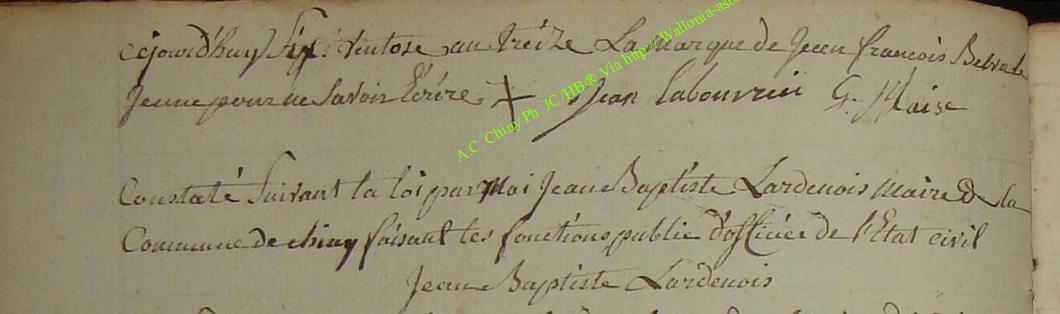 cejourd'huy Six Ventose an treize La marque de Jean françois
Jeune pour ne Savoir Ecrire + Jean Labouvrie G. Plaise
Constaté Suivant la loi par Moi Jean Baptiste Lardenois Maire De la
Commune de chiny faisant les fonctions public d'officier de l'Etat civil
Jean Baptiste Lardenois
A.C. Chiny Ph. JC /HB® Via http://Wallonia-asb